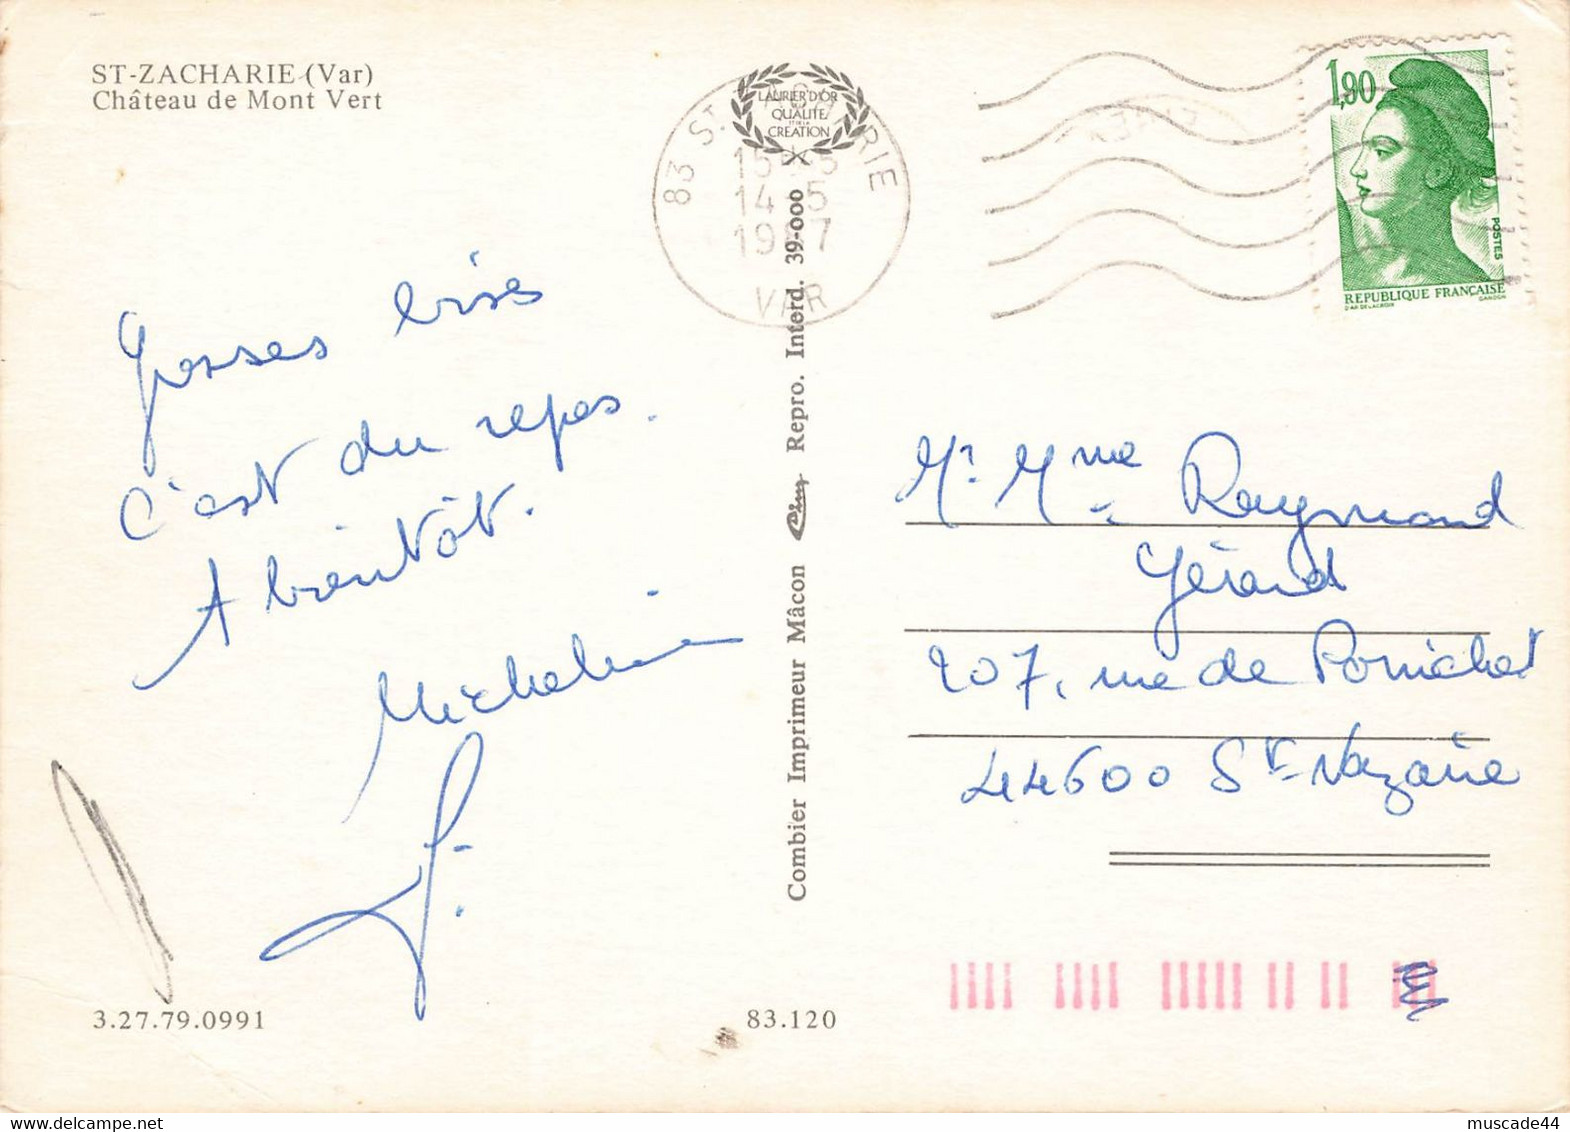 ST-ZACHARIE (Var)
Château de Mont Vert
LAURIER D'OR
DE LA
QUALITE
ET DE LA
CREATION
83 ST ZACHARIE
15
14-5
1987
VAR
1,90
POSTES
REPUBLIQUE FRANÇAISE
D'AP. DELACROIX
GANDON
Grosses bises
C'est du repos.
A bientôt.
Micheline
Combier Imprimeur Mâcon Repro. Interd. 39-000
Mr Mme Raymond
Gérard
207, rue de Pornichet
44600 St-Nazaire
3.27.79.0991
83.120
muscade44